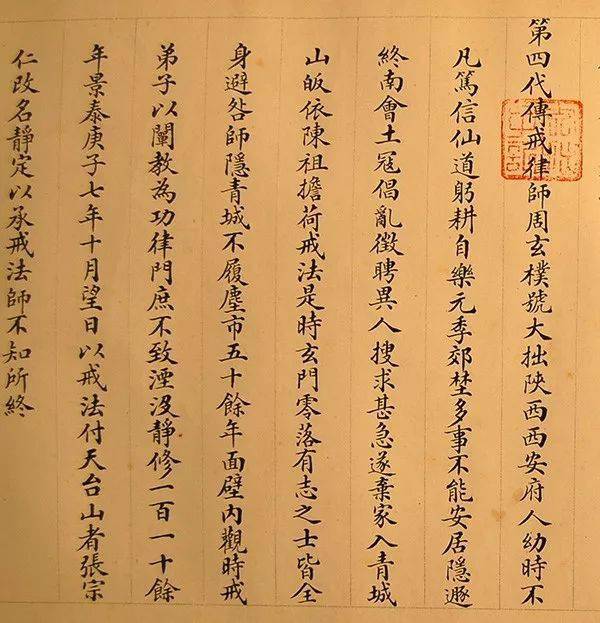 第四代傳戒律師周玄樸號大拙陝西西安府人幼時不
凡篤信仙道躬耕自樂元季郊埜多事不能安居隱遯
終南會土寇倡亂徵聘異人搜求甚急遂棄家入青城
山皈依陳祖擔荷戒法是時玄門零落有志之士皆全
身避咎師隱青城不履塵市五十餘年面壁內觀時戒
弟子以闡教為功律門庶不致湮沒靜修一百一十餘
年景泰庚子七年十月望日以戒法付天台山者張宗
仁改名靜定以承戒法師不知所終